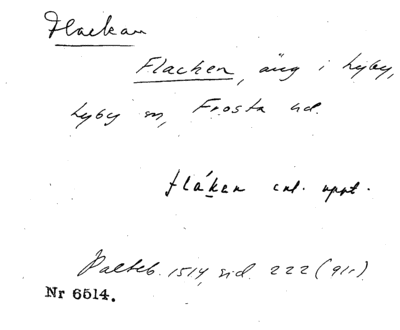 Flackan
Flacken, äng i Lyby,
Lyby sn, Frosta hd.
flåken enl. uppt.
Palteb. 1514, sid. 222 (911)
Nr 6514.